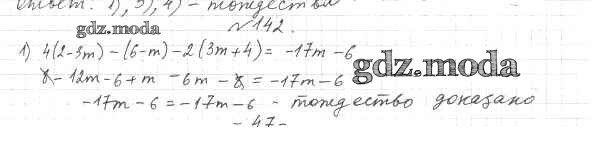 Ответ: 1), 3), 4) - тождества
gdz.moda
№142.
1) 4(2-3m) - (6-m) - 2(3m+4) = -17m - 6
8 - 12m - 6 + m - 6m - 8 = -17m - 6
gdz.moda
-17m - 6 = -17m - 6 - тождество доказано
- 47 -